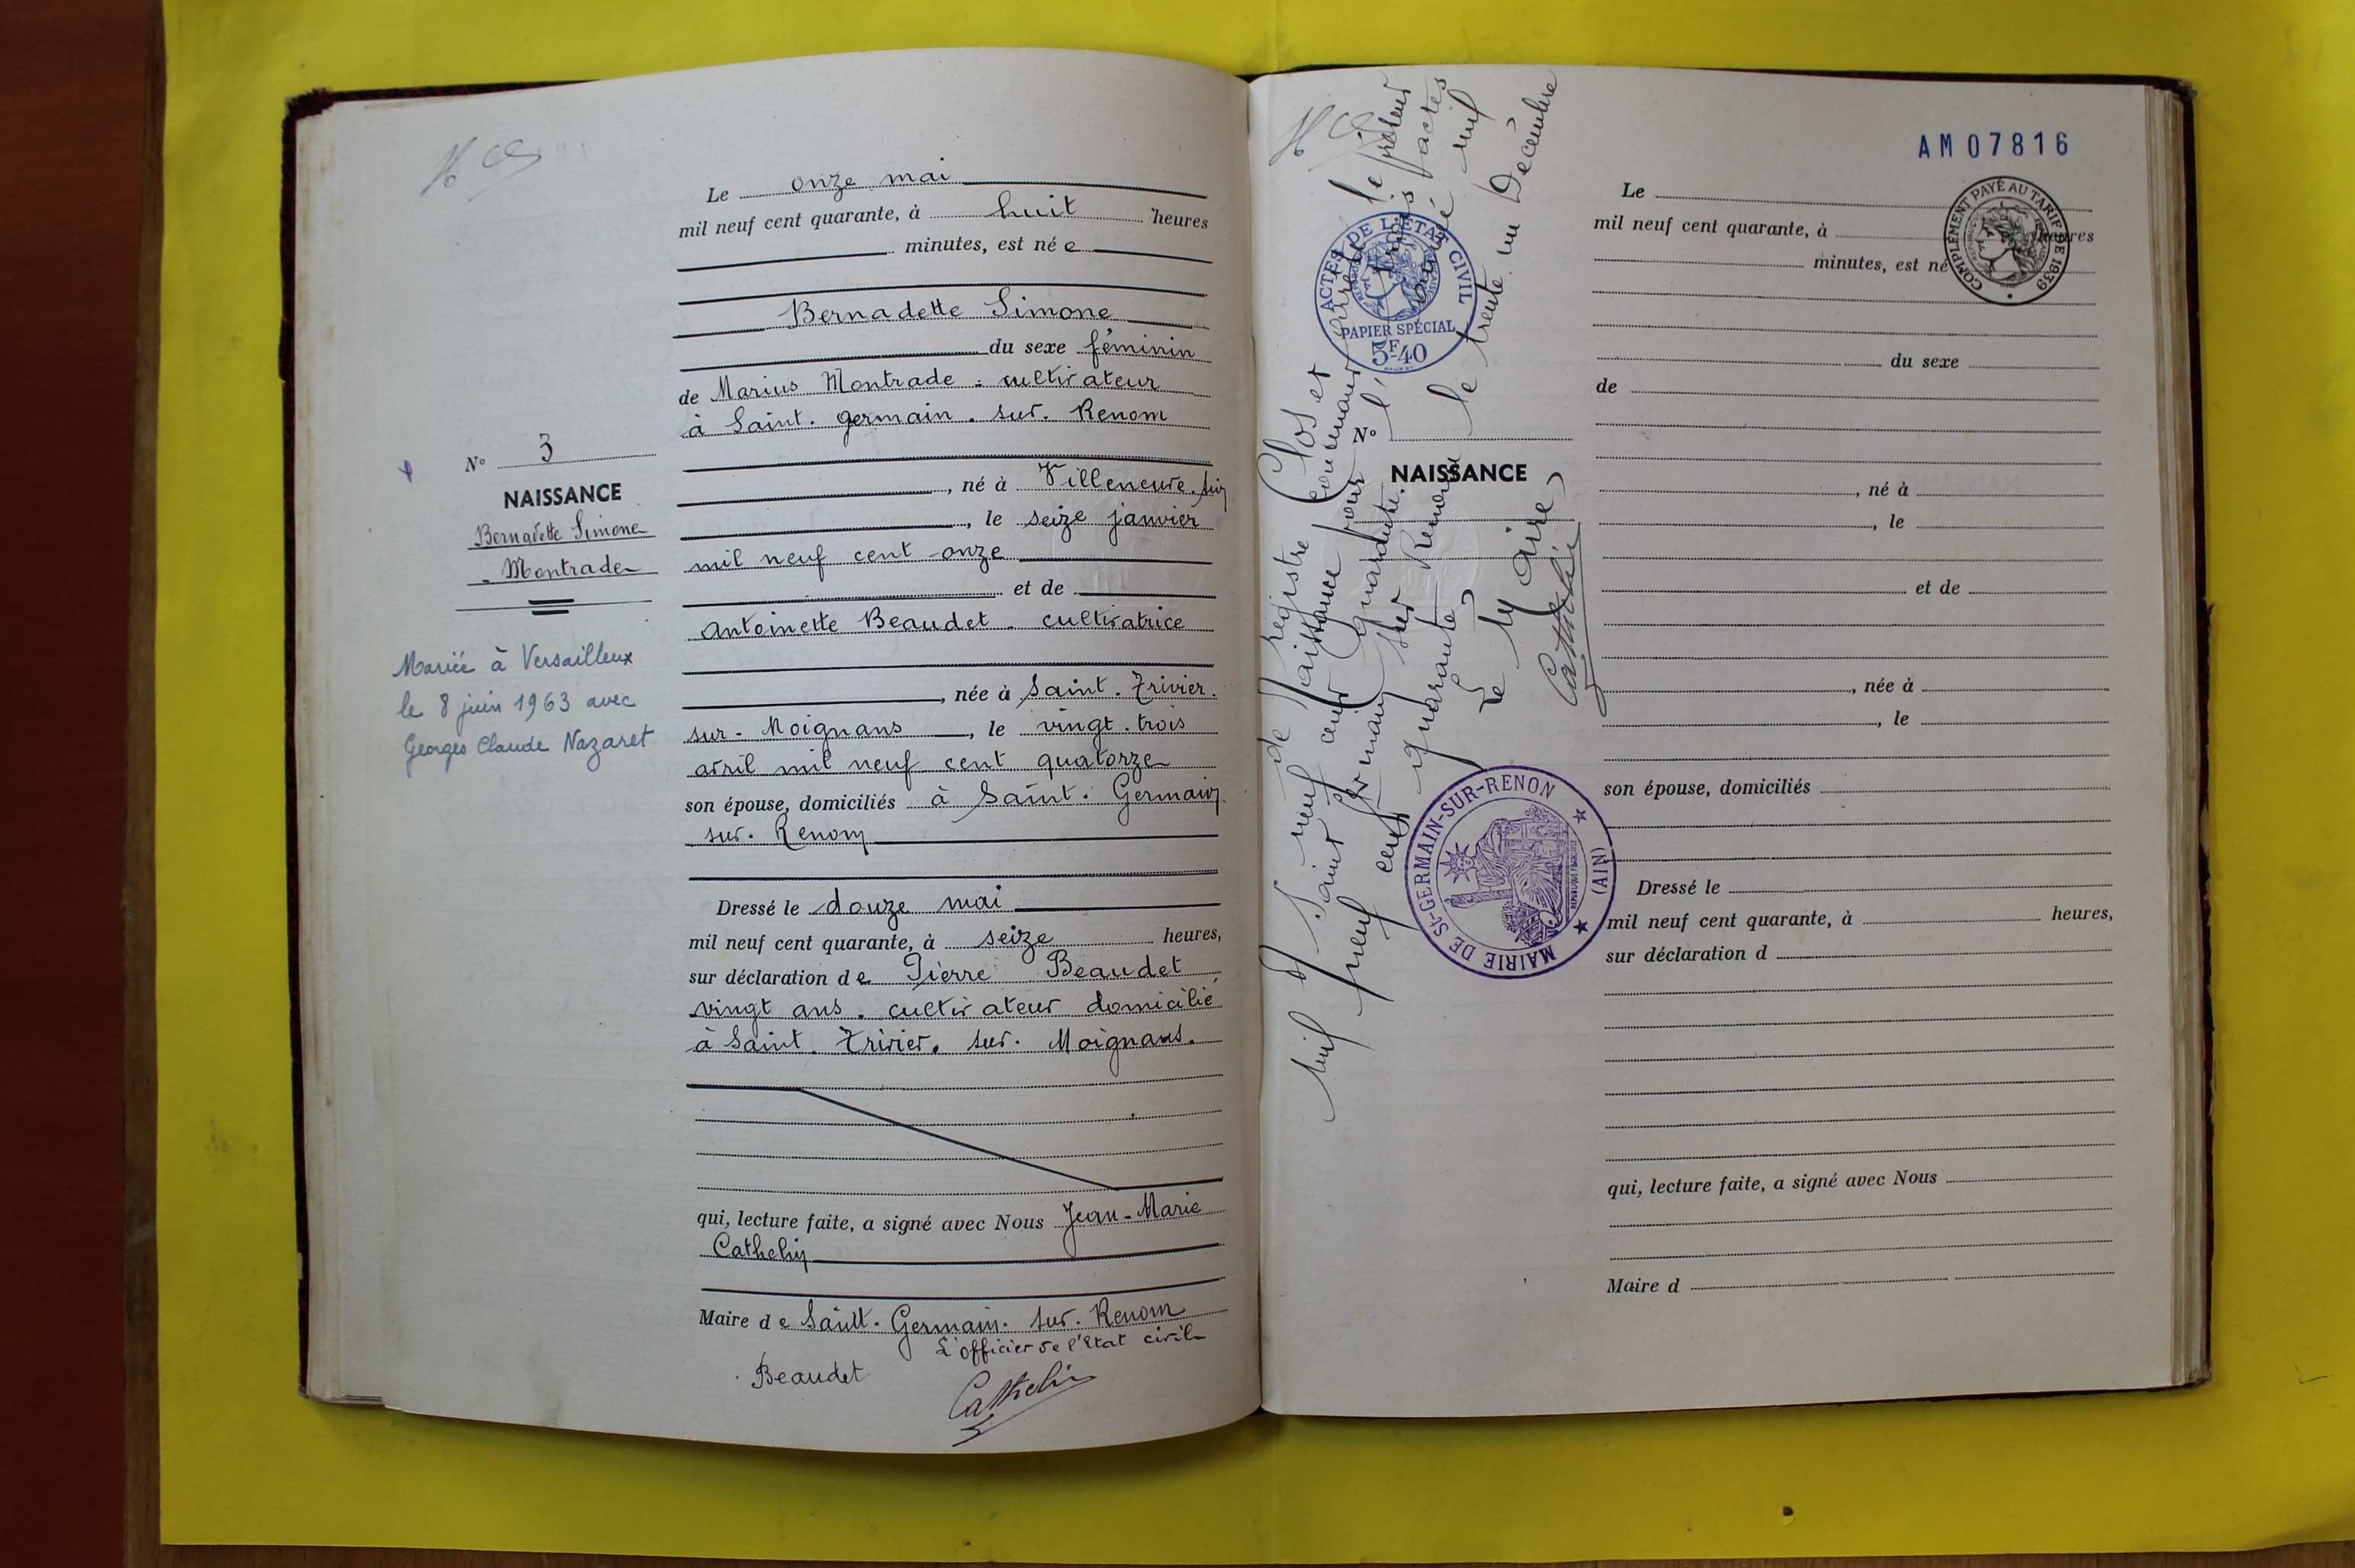 Le onze mai
mil neuf cent quarante, à huit heures
minutes, est née
Bernadette Simone
du sexe féminin
de Marius Montrade - cultivateur
à Saint. germain. sur. Renom
N° 3
NAISSANCE
Bernadette Simone
- Montrade
, né à Villeneuve. sur
, le seize janvier
mil neuf cent onze
et de
Antoinette Beaudet - cultivatrice
Mariée à Versailleux
le 8 juin 1963 avec
Georges Claude Nazaret
, née à Saint. Trivier.
sur - Moignans, le vingt. trois
avril mil neuf cent quatorze
son épouse, domiciliés à Saint. Germain
sur. Renom
Dressé le douze mai
mil neuf cent quarante, à seize heures,
sur déclaration de Pierre Beaudet
vingt ans. cultivateur domicilié
à Saint. Trivier. sur. Moignans.
qui, lecture faite, a signé avec Nous Jean-Marie
Cathelin
Maire de Saint. Germain. sur. Renom
L'officier de l'Etat civil
Beaudet
Cathelin
Clos et arrêté le présent
registre
de naissance
actes
pour l'année mil
neuf cent quarante.
Saint Germain sur Renom le trente un Décembre
mil neuf cent quarante
Le Maire
Cathelin
ACTES DE L'ÉTAT CIVIL
PAPIER SPÉCIAL
5F-40
MAIRIE DE St-GERMAIN-SUR-RENON (AIN)
AM07816
COMPLÉMENT PAYÉ AU TARIF DE 1939
Le
mil neuf cent quarante, à heures
minutes, est né
du sexe
de
N°
NAISSANCE
, né à
, le
et de
, née à
, le
son épouse, domiciliés
Dressé le
mil neuf cent quarante, à heures,
sur déclaration d
qui, lecture faite, a signé avec Nous
Maire d